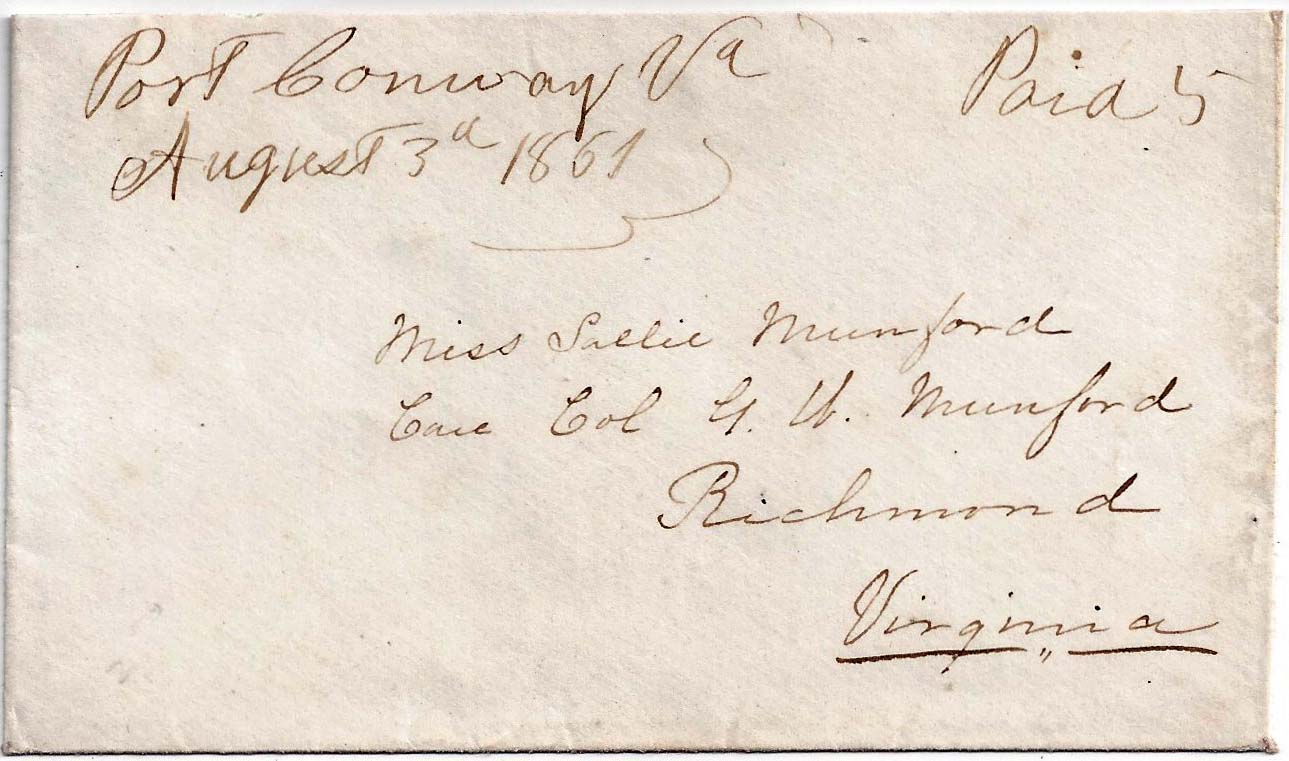 Port Conway Va
Paid 5
August 3d 1861
Miss Sallie Munford
Care Col G. W. Munford
Richmond
Virginia